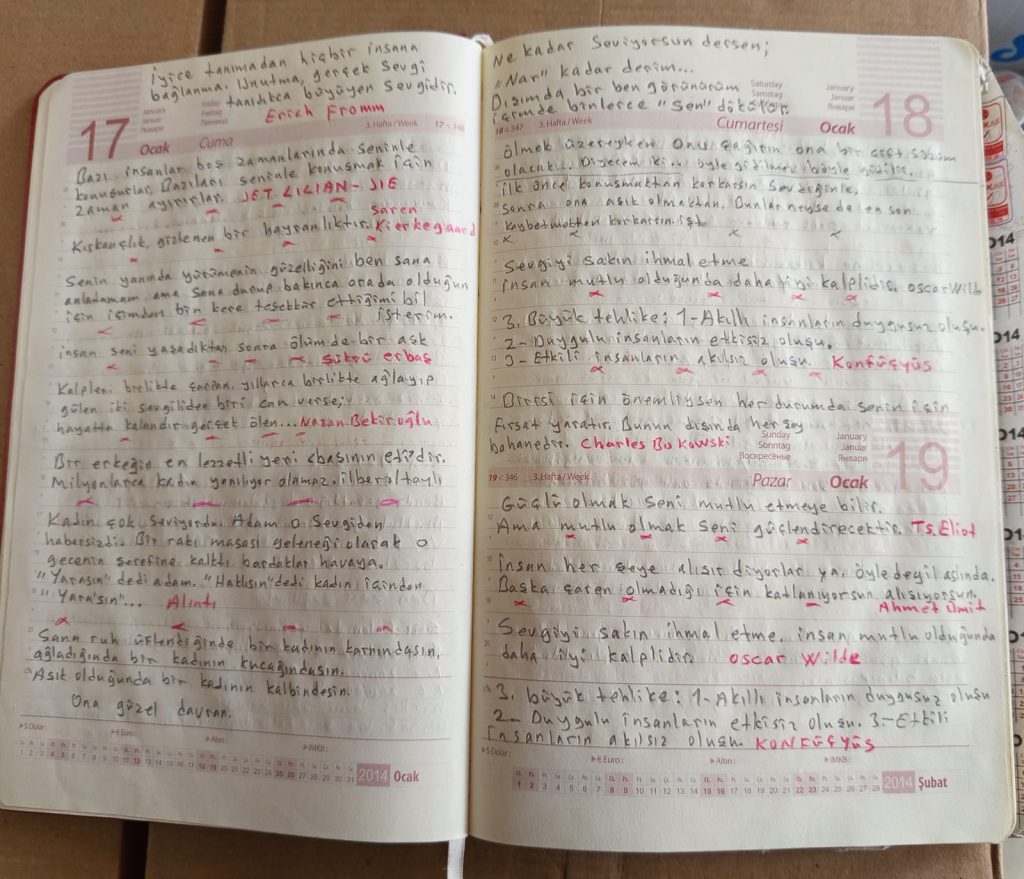 İyice tanımadan hiçbir insana
bağlanma. Unutma, gerçek sevgi
tanıdıkca büyüyen sevgidir.
Erich Fromm
January
Januar
Январь
Friday
Freitag
Пятница
3. Hafta / Week
17 < 348
17
Ocak
Cuma
Bazı insanlar boş zamanlarında seninle
konuşurlar. Bazıları seninle konuşmak için
zaman ayırırlar. JET LILIAN - JIE
Kıskançlık, gizlenen bir hayranlıktır. Saren
Kierkegaard
Senin yanında yürümenin güzelliğini ben sana
anlatamam ama sana durup bakınca orada olduğun
için içimden bin kere teşekkür ettiğimi bil
isterim.
insan seni yaşadıktan sonra ölüm de bir aşk
Şükrü erbaş
Kalpleri birlikte çarpan, yıllarca birlikte ağlayıp
gülen iki sevgiliden biri can verse;
hayatta kalandır gerçek ölen... Nazan Bekiroğlu
Bir erkeğin en lezzetli yeri başının etidir.
Milyonlarca kadın yanılıyor olamaz. ilber oltaylı
Kadın çok seviyordu. Adam o sevgiden
habersizdi. Bir rakı masası geleneği olarak o
gecenin şerefine kalktı bardaklar havaya.
"Yarasın" dedi adam. "Haklısın" dedi kadın içinden
"Yara'sın"... Alıntı
Sana ruh üflendiğinde bir kadının karnındasın,
ağladığında bir kadının kucağındasın.
Aşık olduğunda bir kadının kalbindesin.
Ona güzel davran.
$ Dolar :
€ Euro :
Altın :
İMKB :
1 2 3 4 5 6 7 8 9 10 11 12 13 14 15 16 17 18 19 20 21 22 23 24 25 26 27 28 29 30 31
2014 Ocak
Ne kadar Seviyorsun dersen;
"Nar" kadar derim...
Dışımda bir ben görünürüm
içimde binlerce "Sen" dökülür.
Saturday
Samstag
January
Januar
Январь
18
18 < 347
3. Hafta / Week
Cumartesi
Ocak
ölmek üzereyken onu çağırın ona bir çift sözüm
olacak... Diyecem ki... öyle gidilmez böyle gidilir.
ilk önce konuşmaktan korkarsın sevdiğinle,
Sonra ona aşık olmaktan, Bunlar neyse de en son
kaybetmekten korkarsın işte
Sevgiyi sakın ihmal etme
İnsan mutlu olduğunda daha iyi kalplidir. oscar Wild
3. Büyük tehlike: 1- Akıllı insanların duygusuz oluşu.
2- Duygulu insanların etkisiz oluşu.
3- Etkili insanların akılsız oluşu. Konfüçyüs
Birisi için önemliysen her durumda senin için
fırsat yaratır. Bunun dışında herşey
bahanedir. Charles Bukowski
Sunday
Sonntag
Воскресенье
January
Januar
Январь
19
19 < 346
3. Hafta / Week
Pazar
Ocak
Güçlü olmak seni mutlu etmeye bilir.
Ama mutlu olmak seni güçlendirecektir. Ts. Eliot
İnsan her şeye alışır diyorlar ya, öyle değil aslında.
Başka çaren olmadığı için katlanıyorsun alışıyorsun.
Ahmet Ümit
Sevgiyi sakın ihmal etme, insan mutlu olduğunda
daha iyi kalplidir. oscar Wilde
3. büyük tehlike: 1- Akıllı insanların duygusuz oluşu
2- Duygulu insanların etkisiz oluşu. 3- Etkili
insanların akılsız oluşu. KONFÜÇYÜS
$ Dolar :
€ Euro :
Altın :
İMKB :
1 2 3 4 5 6 7 8 9 10 11 12 13 14 15 16 17 18 19 20 21 22 23 24 25 26 27 28
2014 Şubat